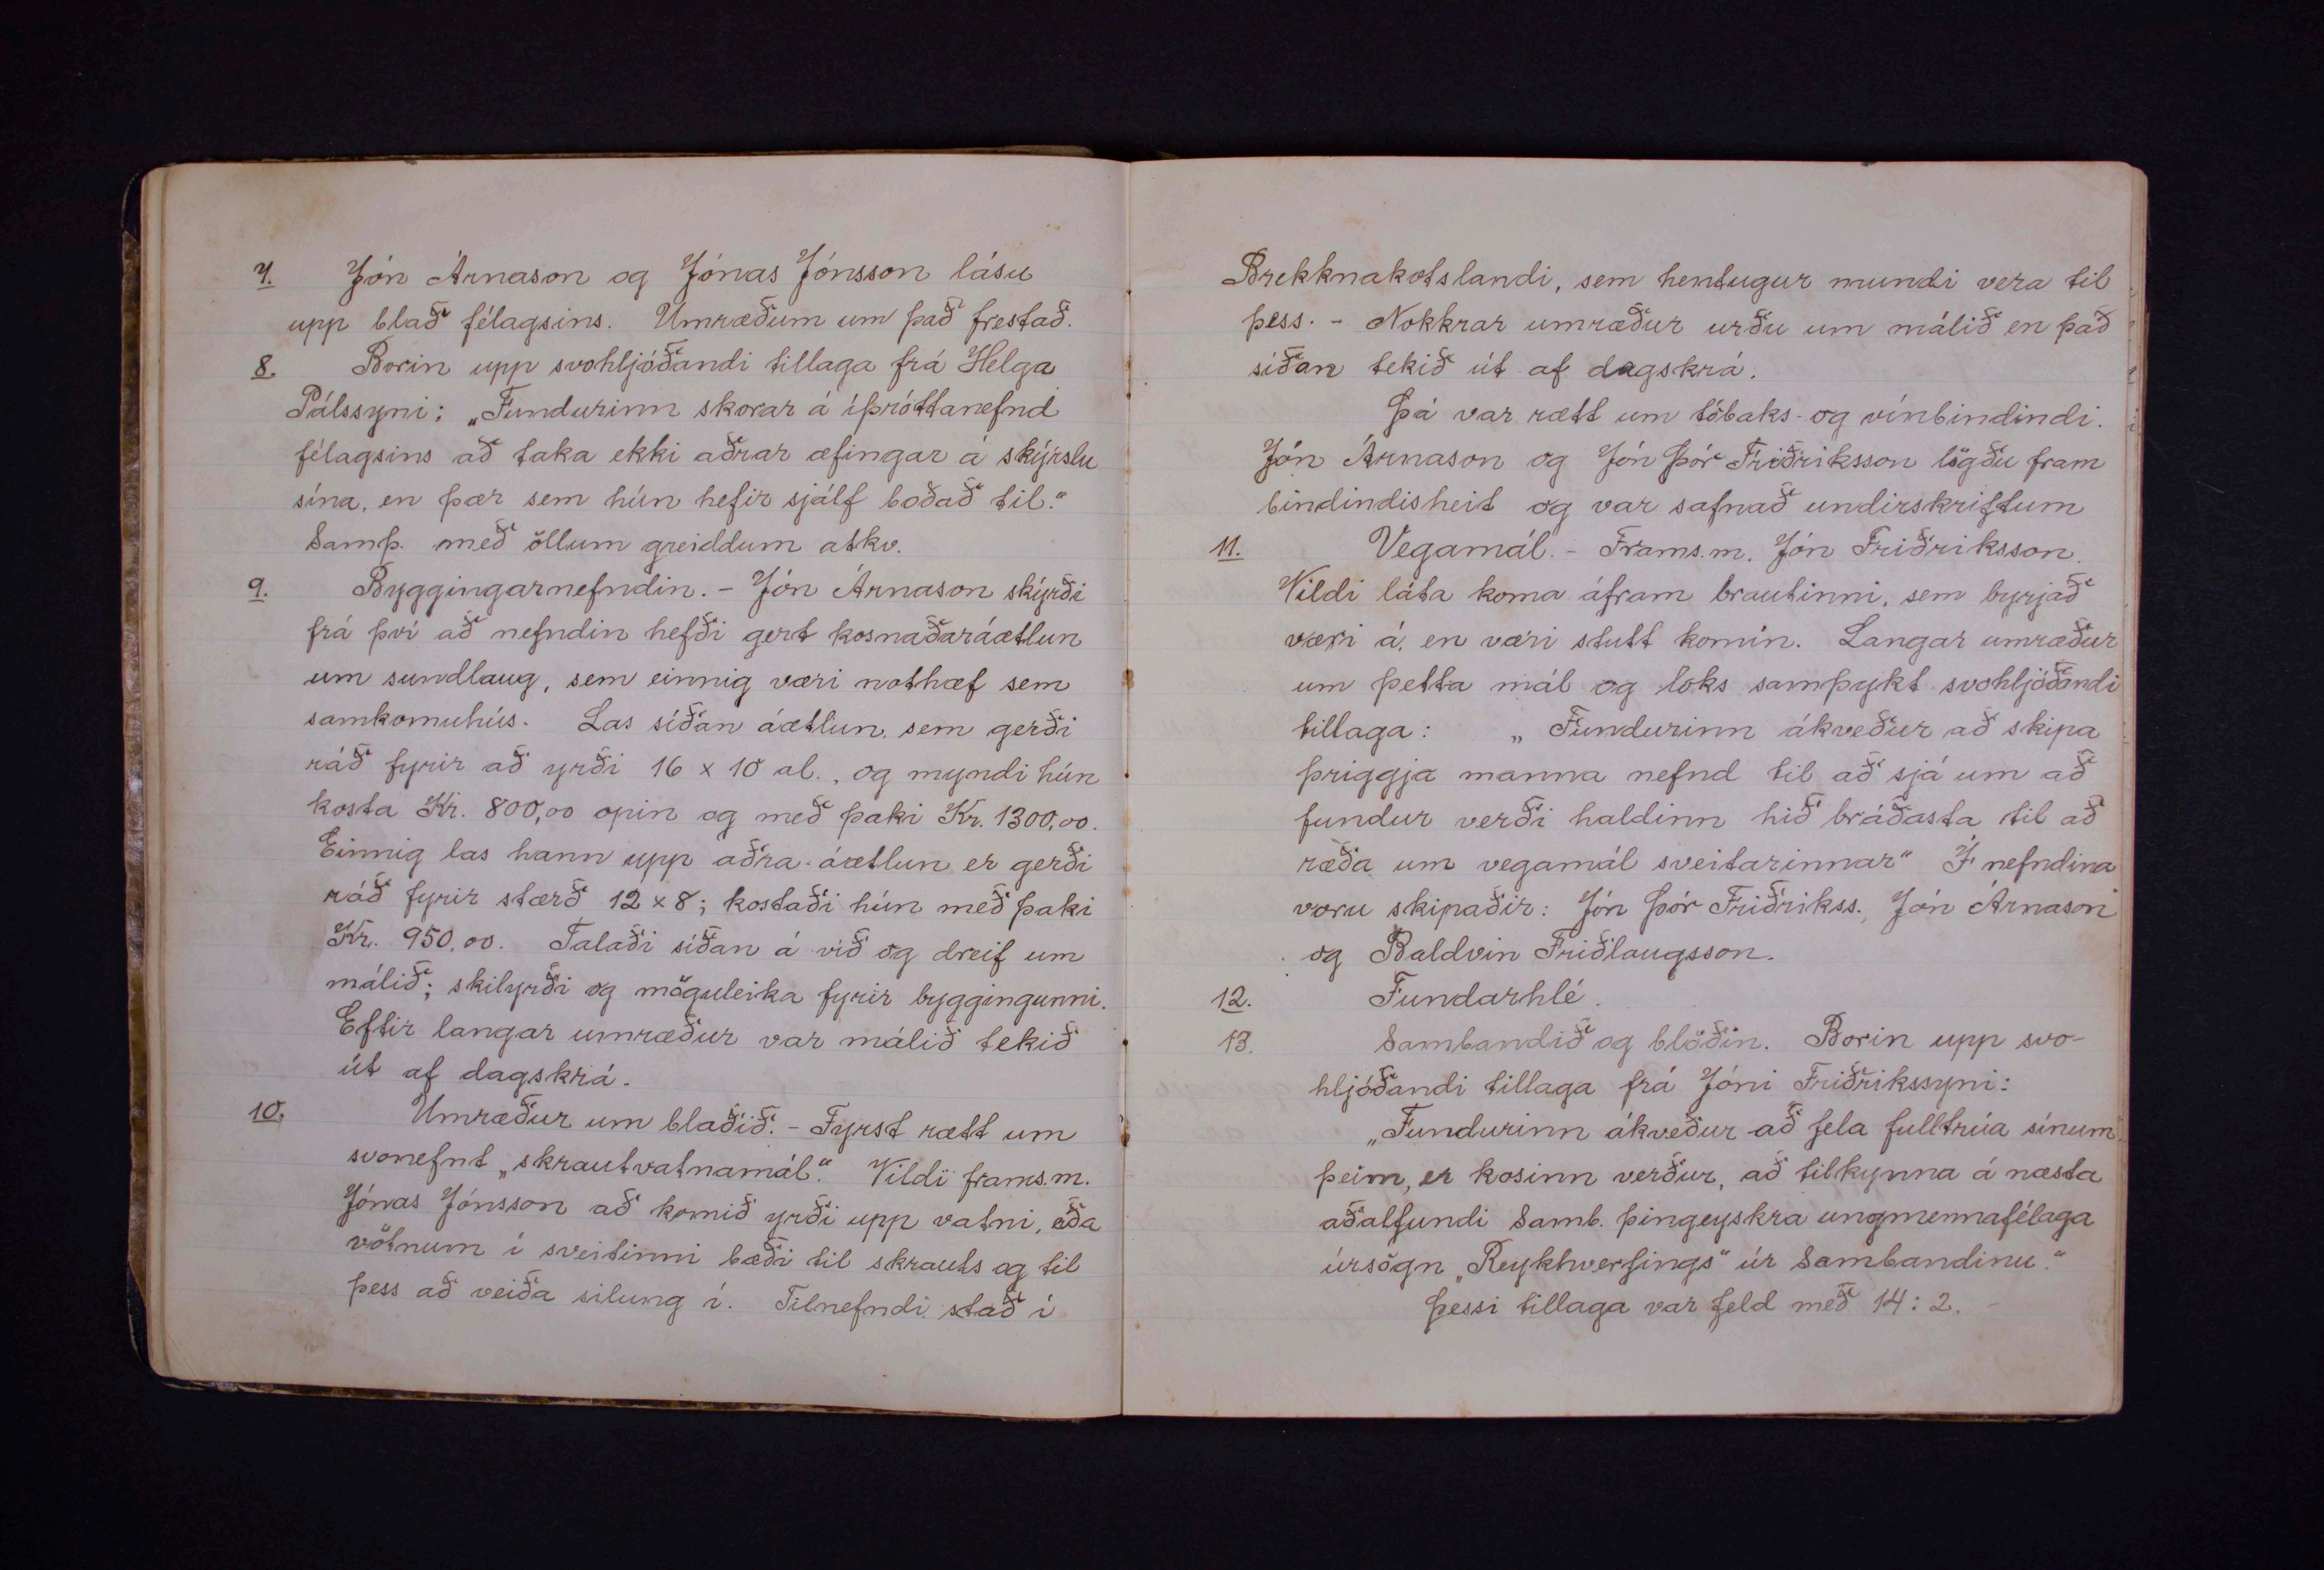 7. Jón Árnason og Jónas Jónsson lásu
upp blað félagsins. Umræðum um það frestað.
8. Borin upp svohljóðandi tillaga frá Helga
Pálssyni: „Fundurinn skorar á íþróttanefnd
félagsins að taka ekki aðrar æfingar á skýrslu
sína, en þær sem hún hefir sjálf boðað til."
Samþ. með öllum greiddum atkv.
9. Byggingarnefndin. - Jón Árnason skýrði
frá því að nefndin hefði gert kosnaðaráætlun
um sundlaug, sem einnig væri nothæf sem
samkomuhús. Las síðan áætlun sem gerði
ráð fyrir að yrði 16 x 10 al., og myndi hún
kosta Kr. 800,00 opin og með þaki Kr. 1300,00.
Einnig las hann upp aðra áætlun er gerði
ráð fyrir stærð 12 x 8; kostaði hún með þaki
Kr. 950,00. Talaði síðan á víð og dreif um
málið; skilyrði og möguleika fyrir byggingunni.
Eftir langar umræður var málið tekið
út af dagskrá.
10. Umræður um blaðið. - Fyrst rætt um
svonefnt „skrautvatnamál". Vildi frams.m.
Jónas Jónsson að komið yrði upp vatni, eða
vötnum í sveitinni bæði til skrauts og til
þess að veiða silung í. Tilnefndi stað í
Brekknakotslandi, sem hentugur mundi vera til
þess. - Nokkrar umræður urðu um málið en það
síðan tekið út af dagskrá.
Þá var rætt um tóbaks- og vínbindindi.
Jón Árnason og Jón Þór Friðriksson lögðu fram
bindindisheit og var safnað undirskriftum
11. Vegamál. - Frams.m. Jón Friðriksson.
Vildi láta koma áfram brautinni, sem byrjað
væri á, en væri stutt komin. Langar umræður
um þetta mál og loks samþykt svohljóðandi
tillaga: „Fundurinn ákveður að skipa
þriggja manna nefnd til að sjá um að
fundur verði haldinn hið bráðasta til að
ræða um vegamál sveitarinnar" Í nefndina
voru skipaðir: Jón Þór Friðrikss., Jón Árnason
og Baldvin Friðlaugsson.
12. Fundarhlé.
13. Sambandið og blöðin. Borin upp svo-
hljóðandi tillaga frá Jóni Friðrikssyni:
„Fundurinn ákveður að fela fulltrúa sínum
þeim, er kosinn verður, að tilkynna á næsta
aðalfundi Samb. þingeyskra ungmennafélaga
úrsögn „Reykhverfings" úr Sambandinu."
Þessi tillaga var feld með 14 : 2. -